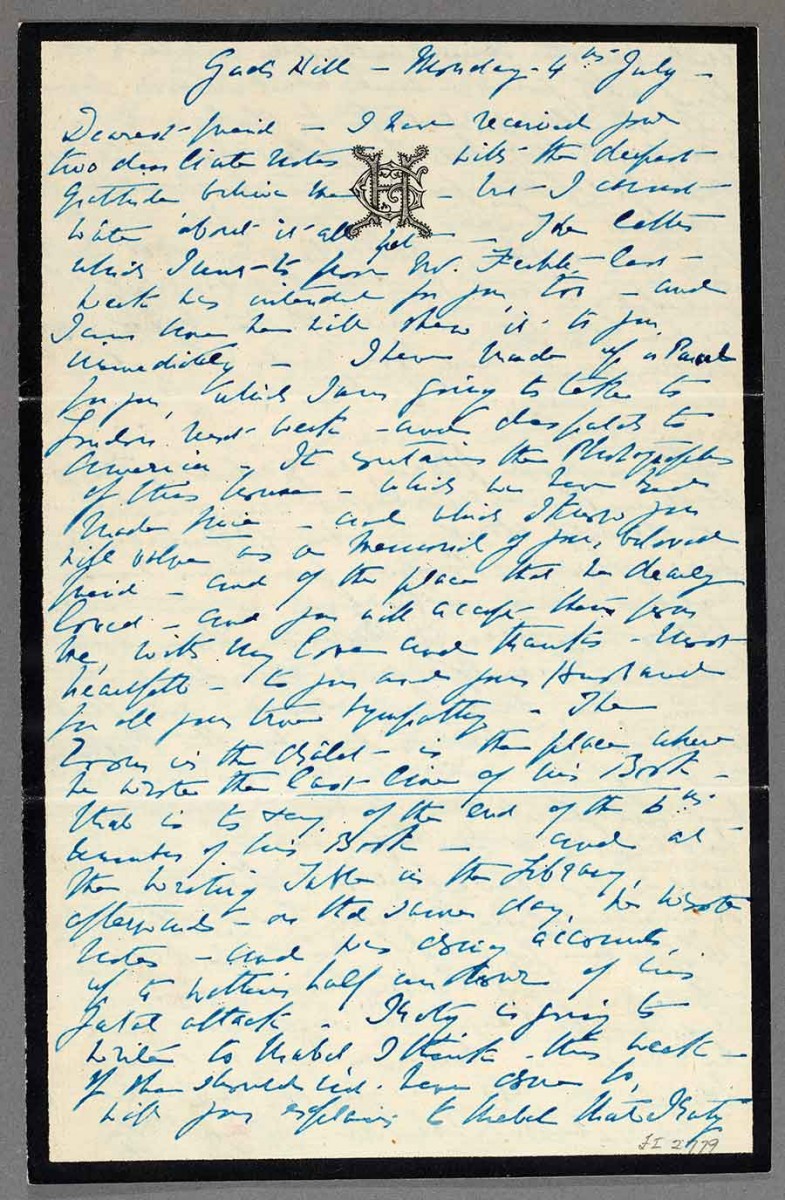 Gads Hill – Monday – 4th July –
Dearest friend – I have received your
two dear kind notes with the deepest
gratitude believe me – but I cannot
write about it all yet – The letter
which I sent to from Mr. Fechter last
week was intended for you, too – and
I am sure he will shew it to you
immediately – I have made up a Parcel
for you, which I am going to take to
London next week – and despatch to
America – It contains the Photographs
of this house – which we have had
made since – and which I know you
will value as a memorial of your beloved
friend – and of the place that he dearly
loved – and you will accept them from
me, with my love and thanks – most
heartfelt – to you and your Husband
for all your true sympathy – The
room in the Châlet – is the place where
he wrote the last line of his Book –
that is to say, of the end of the 6th
number of his Book – and at
the Writing Table in the Library,
afterwards – on the same day, he wrote
notes – and was doing accounts,
up to within half an hour of his
fatal attack – Katy is going to
write to Mabel I think – this week –
If she should not have done so,
will you explain to Mabel that Katy
FI 2779